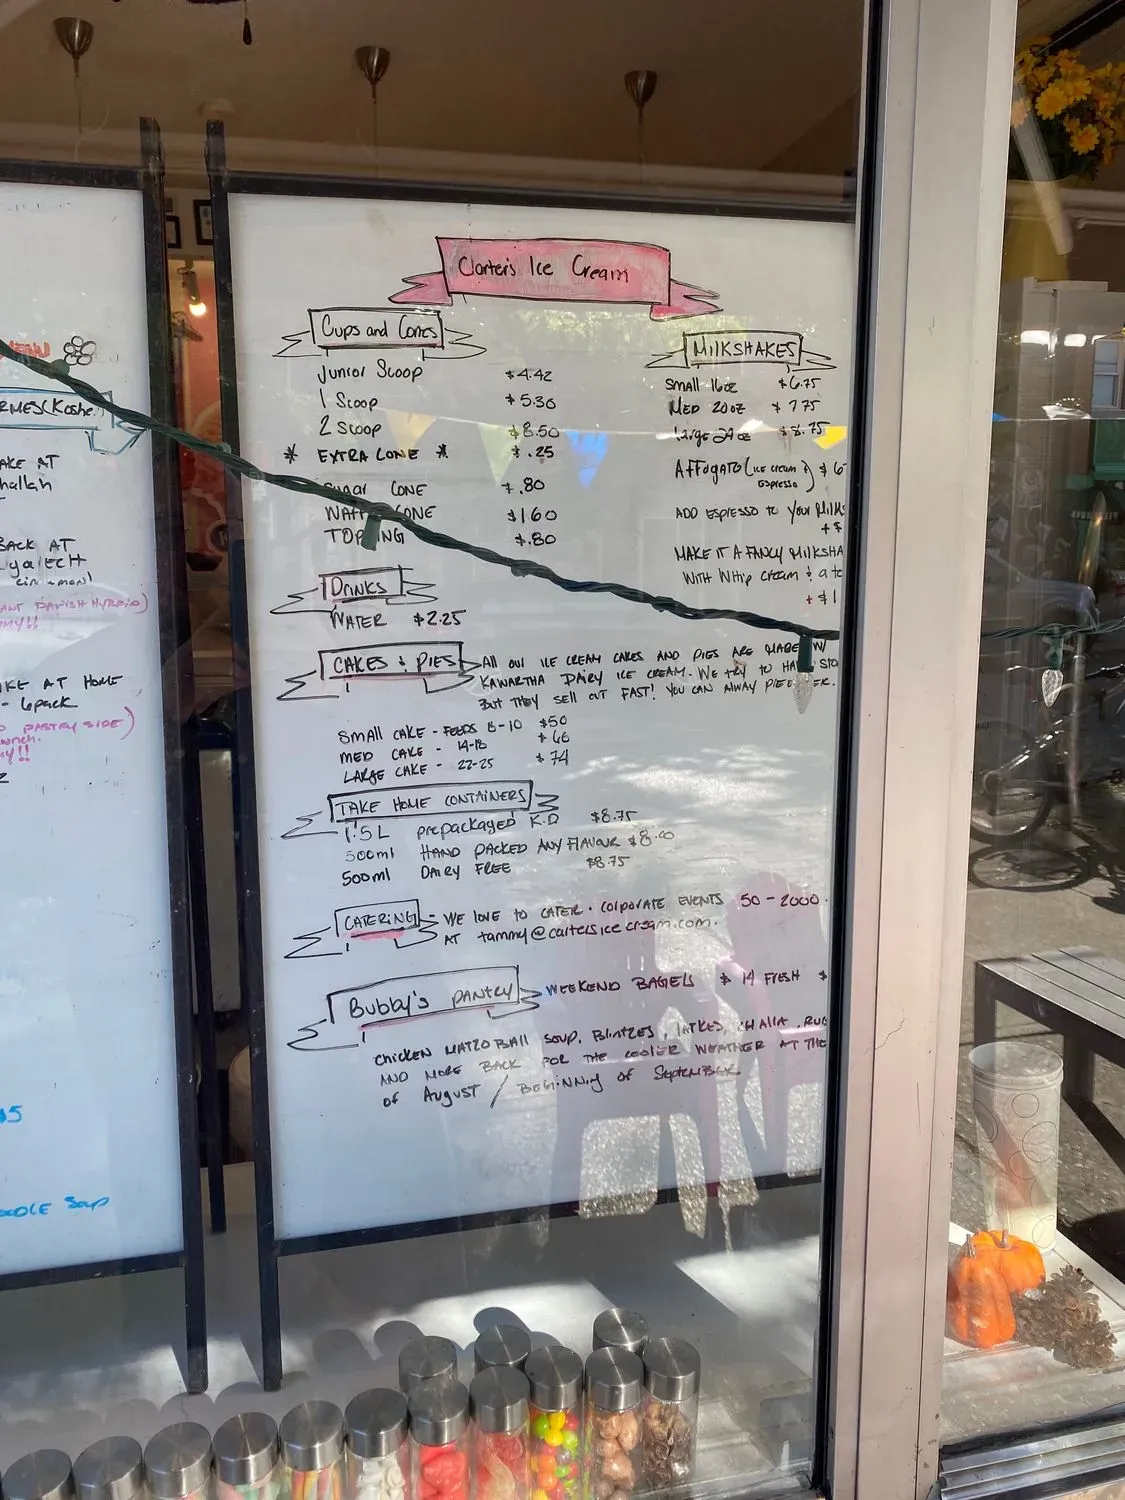 Carter's Ice Cream
Cups and Cones
Junior Scoop $4.42
1 Scoop $5.30
2 Scoop $8.50
* EXTRA CONE * $.25
Sugar CONE $.80
WAFFLE CONE $1.60
TOPPING $.80
MILKSHAKES
Small 16oz $6.75
MED 20oz $7.75
Large 24oz $8.75
AFFOGATO (ICE CREAM & Espresso) $6
ADD ESPRESSO TO YOUR MILKS
+$
MAKE IT A FANCY MILKSHA
WITH WHIP CREAM & a
+$1
DRINKS
WATER $2.25
CAKES & PIES
All OUR ICE CREAM CAKES AND PIES ARE MADE W/
KAWARTHA DAIRY ICE CREAM. WE TRY TO
BUT THEY SELL OUT FAST! YOU CAN ALWAY
SMALL CAKE - FEEDS 8-10 $50
MED CAKE - 14-18 $66
LARGE CAKE - 22-25 $74
TAKE HOME CONTAINERS
1.5L prepackaged K.D $8.75
500ml HAND PACKED ANY FLAVOUR $8.00
500ml DAIRY FREE $8.75
CATERING - WE LOVE TO CATER. CORPORATE EVENTS 50-2000.
AT tammy@cartersicecream.com.
Bubby's PANTRY WEEKEND BAGELS $14 FRESH $
CHICKEN MATZO BALL SOUP, BLINTZES, LATKES, CHALLA, RUG
AND MORE BACK FOR THE COOLER WEATHER AT THE
OF August / BEGINNING OF SEPTEMBER
(Koshe
AKE AT
hallah
BACK AT
cinnamon)
ANT DANISH HYBRID)
MMY!!
AKE AT HOME
- 6pack
PASTRY SIDE)
$5
Soup